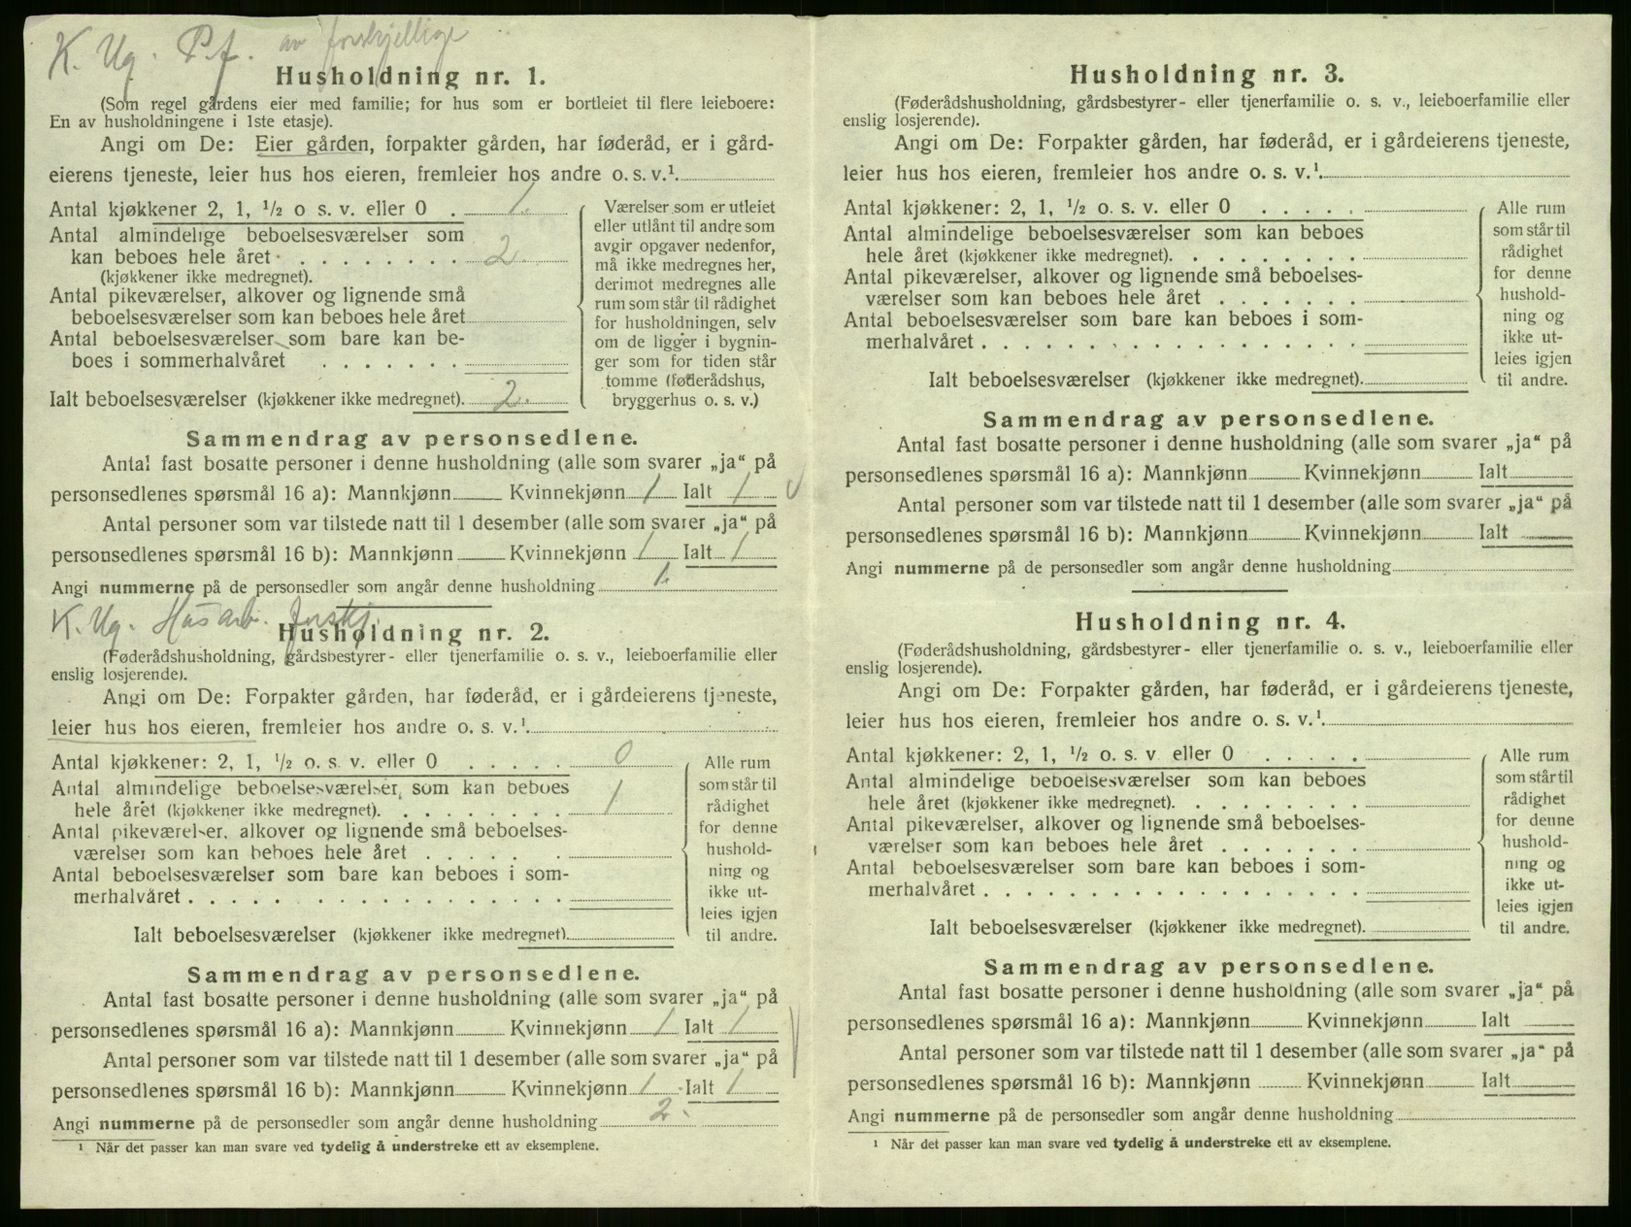 K. Ug. P.f. av forskjellige
Husholdning nr. 1.
(Som regel gårdens eier med familie; for hus som er bortleiet til flere leieboere:
En av husholdningene i 1ste etasje).
Angi om De: Eier gården, forpakter gården, har føderåd, er i gård-
eierens tjeneste, leier hus hos eieren, fremleier hos andre o. s. v.¹
Antal kjøkkener 2, 1, ½ o s. v. eller 0 . 1.
Antal almindelige beboelsesværelser som
kan beboes hele året . . . . . . . . 2.
(kjøkkener ikke medregnet).
Antal pikeværelser, alkover og lignende små
beboelsesværelser som kan beboes hele året
Antal beboelsesværelser som bare kan be-
boes i sommerhalvåret . . . . . . .
Ialt beboelsesværelser (kjøkkener ikke medregnet). 2.
Værelser som er utleiet
eller utlånt til andre som
avgir opgaver nedenfor,
må ikke medregnes her,
derimot medregnes alle
rum som står til rådighet
for husholdningen, selv
om de ligger i bygnin-
ger som for tiden står
tomme (føderådshus,
bryggerhus o. s. v.)
Sammendrag av personsedlene.
Antal fast bosatte personer i denne husholdning (alle som svarer „ja“ på
personsedlenes spørsmål 16 a): Mannkjønn Kvinnekjønn 1 Ialt 1
Antal personer som var tilstede natt til 1 desember (alle som svarer „ja“ på
personsedlenes spørsmål 16 b): Mannkjønn Kvinnekjønn 1 Ialt 1
Angi nummerne på de personsedler som angår denne husholdning 1.
K. Ug. Husarb. forskj.
Husholdning nr. 2.
(Føderådshusholdning, gårdsbestyrer- eller tjenerfamilie o. s. v., leieboerfamilie eller
enslig losjerende).
Angi om De: Forpakter gården, har føderåd, er i gårdeierens tjeneste,
leier hus hos eieren, fremleier hos andre o. s. v.¹
Antal kjøkkener: 2, 1, ½ o. s. v. eller 0 . . . . . 0
Antal almindelige beboelsesværelser som kan beboes
hele året (kjøkkener ikke medregnet). . . . . . . . 1
Antal pikeværelser, alkover og lignende små beboelses-
værelser som kan beboes hele året . . . . . .
Antal beboelsesværelser som bare kan beboes i som-
merhalvåret . . . . . . . . . . . . . . . .
Ialt beboelsesværelser (kjøkkener ikke medregnet).
Alle rum
som står til
rådighet
for denne
hushold-
ning og
ikke ut-
leies igjen
til andre.
Sammendrag av personsedlene.
Antal fast bosatte personer i denne husholdning (alle som svarer „ja“ på
personsedlenes spørsmål 16 a): Mannkjønn Kvinnekjønn 1 Ialt 1
Antal personer som var tilstede natt til 1 desember (alle som svarer „ja“ på
personsedlenes spørsmål 16 b): Mannkjønn Kvinnekjønn 1 Ialt 1
Angi nummerne på de personsedler som angår denne husholdning 2.
¹ Når det passer kan man svare ved tydelig å understreke ett av eksemplene.
Husholdning nr. 3.
(Føderådshusholdning, gårdsbestyrer- eller tjenerfamilie o. s. v., leieboerfamilie eller
enslig losjerende).
Angi om De: Forpakter gården, har føderåd, er i gårdeierens tjeneste,
leier hus hos eieren, fremleier hos andre o. s. v.¹
Antal kjøkkener: 2, 1, ½ o. s. v. eller 0 . . . . .
Antal almindelige beboelsesværelser som kan beboes
hele året (kjøkkener ikke medregnet). . . . . . . .
Antal pikeværelser, alkover og lignende små beboelses-
værelser som kan beboes hele året . . . . . . .
Antal beboelsesværelser som bare kan beboes i som-
merhalvåret . . . . . . . . . . . . . . . .
Ialt beboelsesværelser (kjøkkener ikke medregnet).
Alle rum
som står til
rådighet
for denne
hushold-
ning og
ikke ut-
leies igjen
til andre.
Sammendrag av personsedlene.
Antal fast bosatte personer i denne husholdning (alle som svarer „ja“ på
personsedlenes spørsmål 16 a): Mannkjønn Kvinnekjønn Ialt
Antal personer som var tilstede natt til 1 desember (alle som svarer „ja“ på
personsedlenes spørsmål 16 b): Mannkjønn Kvinnekjønn Ialt
Angi nummerne på de personsedler som angår denne husholdning
Husholdning nr. 4.
(Føderådshusholdning, gårdsbestyrer- eller tjenerfamilie o. s. v., leieboerfamilie eller
enslig losjerende).
Angi om De: Forpakter gården, har føderåd, er i gårdeierens tjeneste,
leier hus hos eieren, fremleier hos andre o. s. v.¹
Antal kjøkkener: 2, 1, ½ o. s. v eller 0 . . . . .
Antal almindelige beboelsesværelser som kan beboes
hele året (kjøkkener ikke medregnet). . . . . . . .
Antal pikeværelser, alkover og lignende små beboelses-
værelser som kan beboes hele året . . . . . . .
Antal beboelsesværelser som bare kan beboes i som-
merhalvåret . . . . . . . . . . . . . . . .
Ialt beboelsesværelser (kjøkkener ikke medregnet).
Alle rum
som står til
rådighet
for denne
hushold-
ning og
ikke ut-
leies igjen
til andre.
Sammendrag av personsedlene.
Antal fast bosatte personer i denne husholdning (alle som svarer „ja“ på
personsedlenes spørsmål 16 a): Mannkjønn Kvinnekjønn Ialt
Antal personer som var tilstede natt til 1 desember (alle som svarer „ja“ på
personsedlenes spørsmål 16 b): Mannkjønn Kvinnekjønn Ialt
Angi nummerne på de personsedler som angår denne husholdning
¹ Når det passer kan man svare ved tydelig å understreke ett av eksemplene.